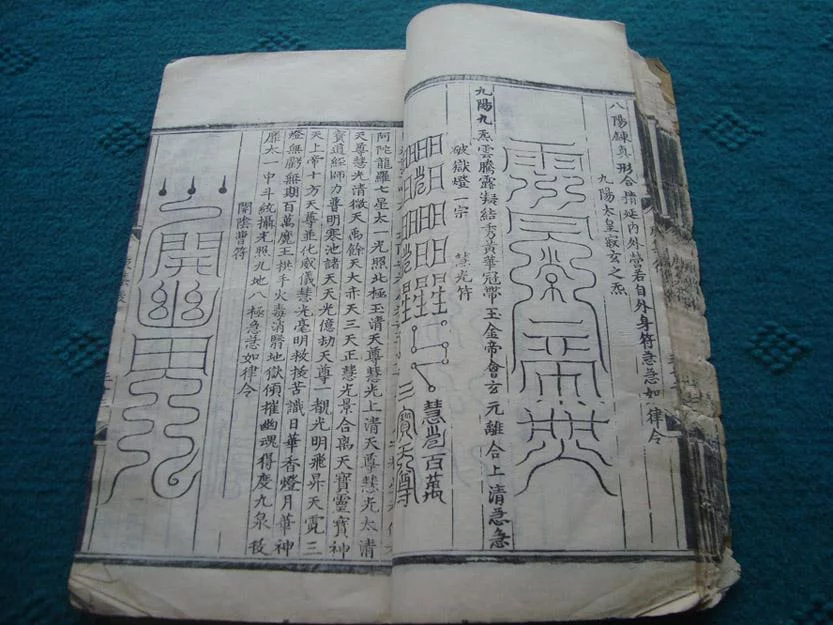 八陽鍊真形合精延內外營若自外身符急急如律令
九陽太皇寂玄之炁
九陽九炁雲騰露凝結秀黃華冠帶玉金帝會玄元離合上清急急
破獄燈一宗 慧光符
慧光百萬
三寶天尊
阿陀龍羅七星太一光照北極玉清天尊慧光上清天尊慧光太清
天尊慧光清微天禹餘天大赤天三天正慧光景合离天寶靈寶神
寶道經師力普明寒池諸天天光億劫天尊一覩光明飛昇天霓三
天上帝十方天尊並化威儀慧光毫明救拔苦識日華香燈月華神
燈無虧無期百萬魔王拱手火毒消脺地獄傾摧幽魂得度九泉
靡太一中斗統攝光照九地八極急急如律令
開陰曹符
開幽